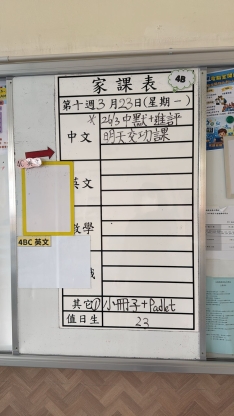 家課表 4B
第十週3月23日(星期一)
中文 26/3中默+進評
明天交功課
英文
4BC 英文
數學
其它①小冊子+Padlet
值日生 23